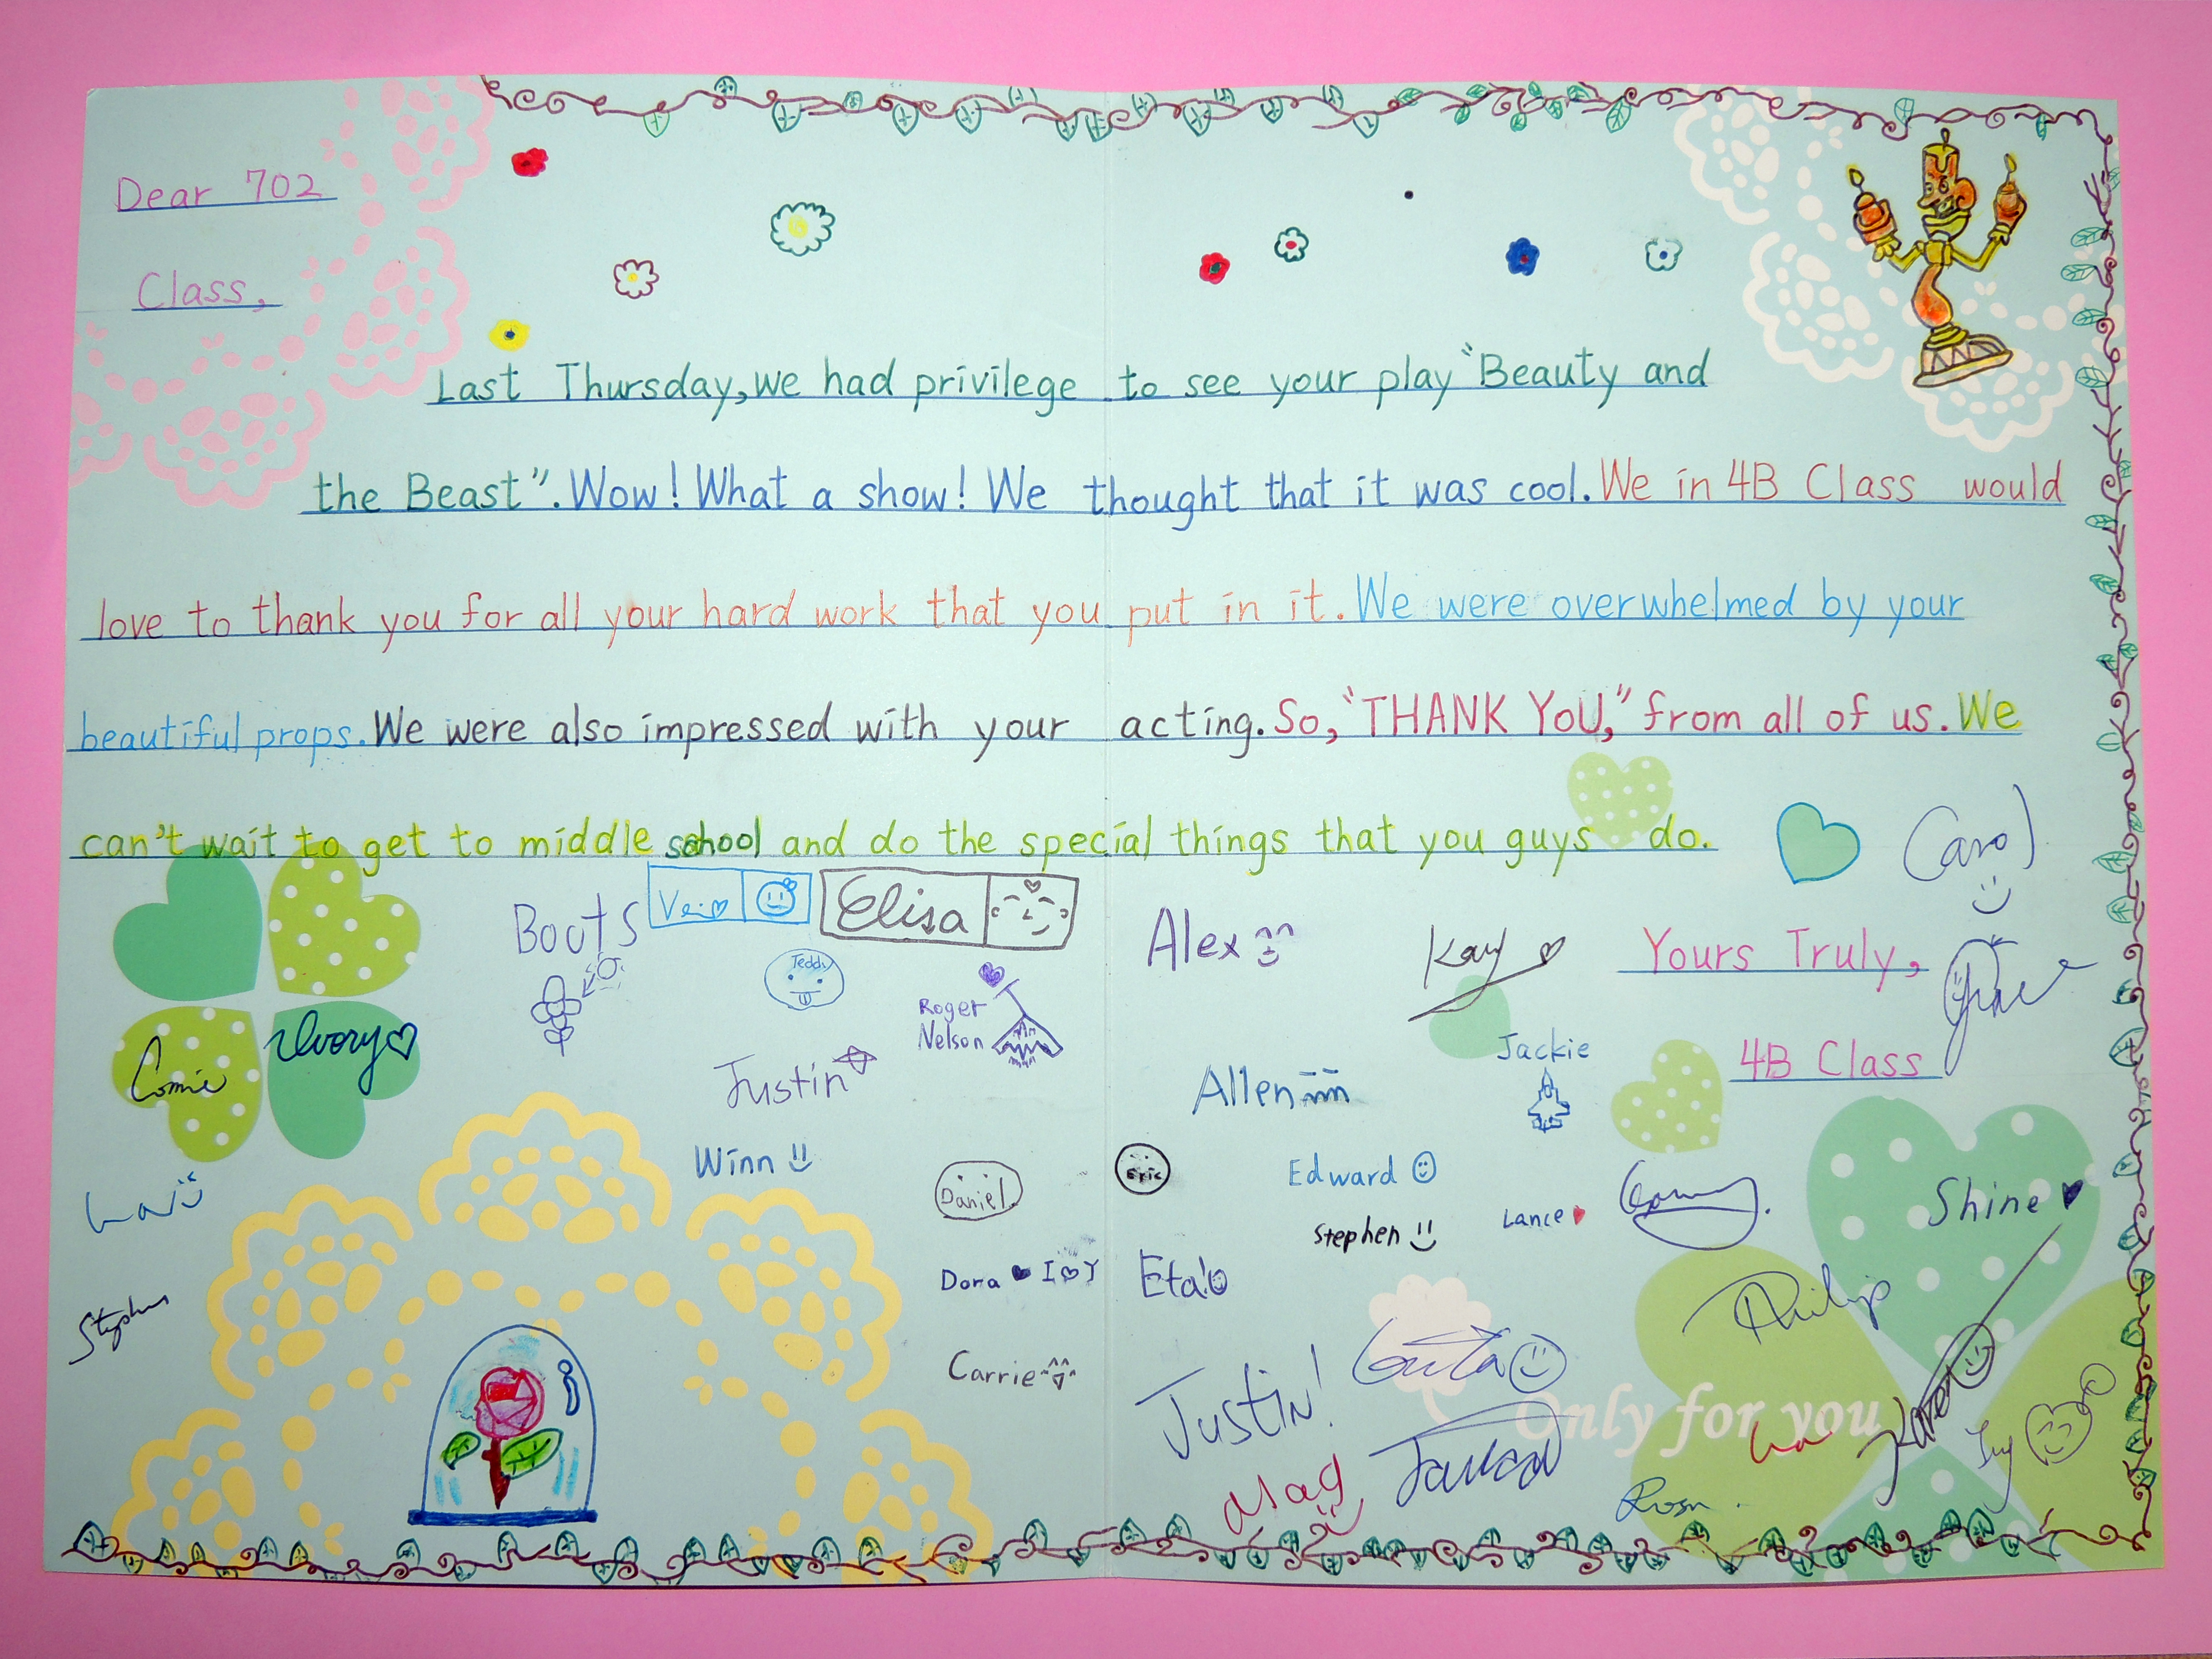 Dear 702
Class,
Last Thursday, we had privilege to see your play "Beauty and
the Beast". Wow! What a show! We thought that it was cool. We in 4B Class would
love to thank you for all your hard work that you put in it. We were overwhelmed by your
beautiful props. We were also impressed with your acting. So, "THANK YOU," from all of us. We
can't wait to get to middle school and do the special things that you guys do.
Carol
Boots
Elisa
Alex
Kay
Yours Truly,
Teddy
Roger
Nelson
Ivory
Connie
Justin
Allen
Jackie
4B Class
Winn
Daniel
Eric
Edward
Shine
Stephen
Lance
Dora I Y
Eta
Stephen
Philip
Carrie
Justin!
Only for you
Karen
Mag